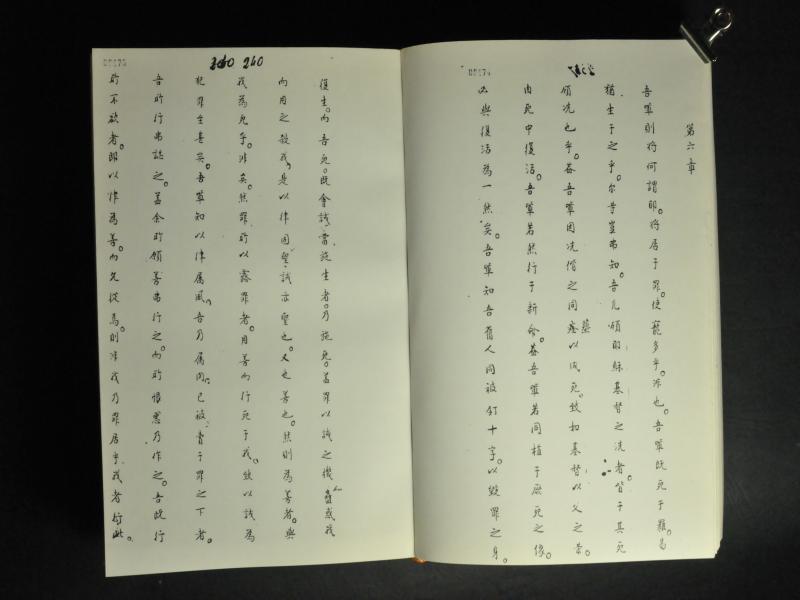 第六章
吾輩則將何謂耶。將居于罪。使寵多乎。非也。吾輩既死于罪。曷
猶生于之乎。尔等豈弗知。吾凡領耶穌基督之洗者。皆于其死
領洗也乎。蓋吾輩因洗偕之同葬以成死。致如基督以父之榮。
由死中復活。吾輩若然行于新命。蓋吾輩若同植于厥死之像。
必與復活為一然矣。吾輩知吾舊人同被釘十字。以毀罪之身。
復生。而吾死。既會誡當施生者。乃施死。蓋罪以誡之機蠱惑我
而用之殺我。是以律固聖。誡亦聖也。又也善也。然則為善者。與
我為死乎。非矣。然罪所以露罪者。用善而行死于我。致以誡為
犯罪至甚矣。吾輩知以律属風。吾乃属肉。已被賣于罪之下者。
吾所行弗誌之。蓋余所領善弗行之。而所恨悪乃作之。吾既行
所不欲者。即以律為善。而允從焉。則非我乃罪居乎我者行此。
240